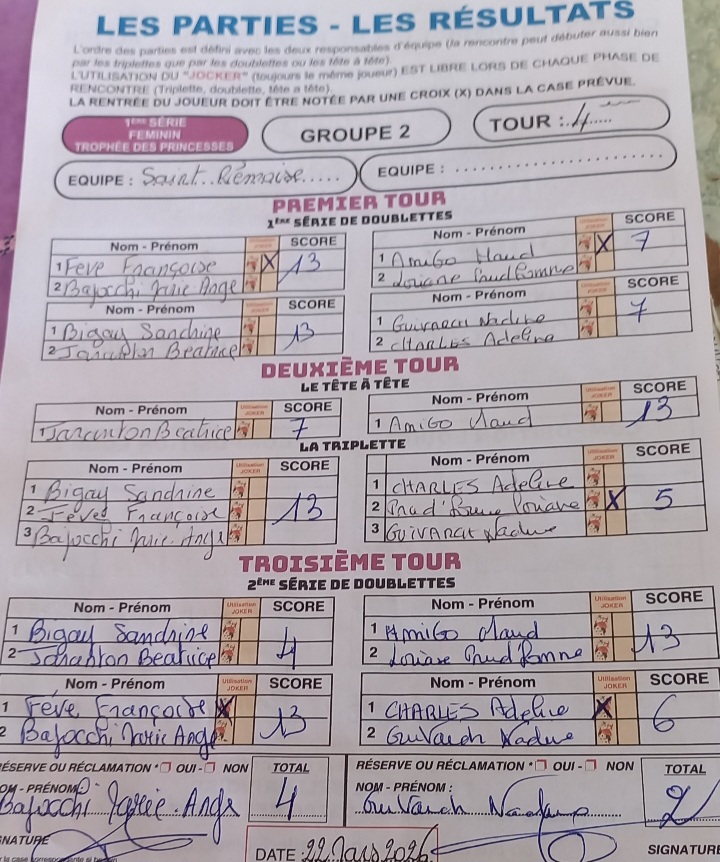 LES PARTIES - LES RÉSULTATS
L'ordre des parties est défini avec les deux responsables d'équipe (la rencontre peut débuter aussi bien
par les triplettes que par les doublettes ou les tête à tête).
L'UTILISATION DU "JOCKER" (toujours le même joueur) EST LIBRE LORS DE CHAQUE PHASE DE
RENCONTRE (Triplette, doublette, tête a tête).
LA RENTRÉE DU JOUEUR DOIT ÊTRE NOTÉE PAR UNE CROIX (X) DANS LA CASE PRÉVUE.
1ÈRE SÉRIE
FEMININ
TROPHÉE DES PRINCESSES
GROUPE 2
TOUR : 4
EQUIPE : Saint Rémoise
EQUIPE :
PREMIER TOUR
1ÈRE SÉRIE DE DOUBLETTES
Nom - Prénom Utilisation JOKER SCORE
1 Feve Françoise X 13
2 Bajocchi Marie Ange
Nom - Prénom SCORE
1 Amigo Maud X 7
2 Louane Prud'homme
Nom - Prénom SCORE
1 Bigay Sandrine 13
2 Beatrice
Nom - Prénom SCORE
1 Guivarch Nadine 7
2 CHARLES Adeline
DEUXIÈME TOUR
LE TÊTE À TÊTE
Nom - Prénom Utilisation JOKER SCORE
1 Beatrice 7
Nom - Prénom SCORE
1 Amigo Maud 13
LA TRIPLETTE
Nom - Prénom Utilisation JOKER SCORE
1 Bigay Sandrine 13
2 Feve Françoise
3 Bajocchi Marie Ange
Nom - Prénom Utilisation JOKER SCORE
1 CHARLES Adeline
2 Prud'homme Louane X 5
3 Guivarch Nadine
TROISIÈME TOUR
2ÈME SÉRIE DE DOUBLETTES
Nom - Prénom Utilisation JOKER SCORE
1 Bigay Sandrine 4
2 Beatrice
Nom - Prénom Utilisation JOKER SCORE
1 Amigo Maud 13
2 Louane Prud'homme
Nom - Prénom Utilisation JOKER SCORE
1 Feve Françoise X 13
2 Bajocchi Marie Ange
Nom - Prénom Utilisation JOKER SCORE
1 CHARLES Adeline X 6
2 Guivarch Nadine
RÉSERVE OU RÉCLAMATION * OUI - NON TOTAL
NOM - PRÉNOM :
Bajocchi Marie-Ange 4
RÉSERVE OU RÉCLAMATION * OUI - NON TOTAL
NOM - PRÉNOM :
Guivarch Nadine 2
DATE : 22 Mars 2026
SIGNATURE